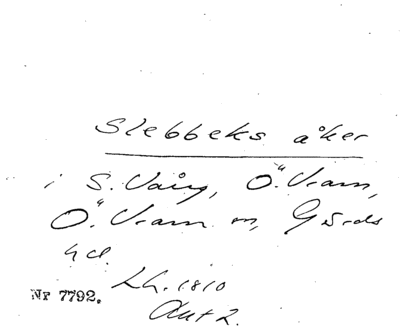 Slebbeks åker
i S. Vång, Ö. Vram,
Ö. Vram sn, Gärds
hd.
Lh. 1810
Akt 2.
Nr 7792.